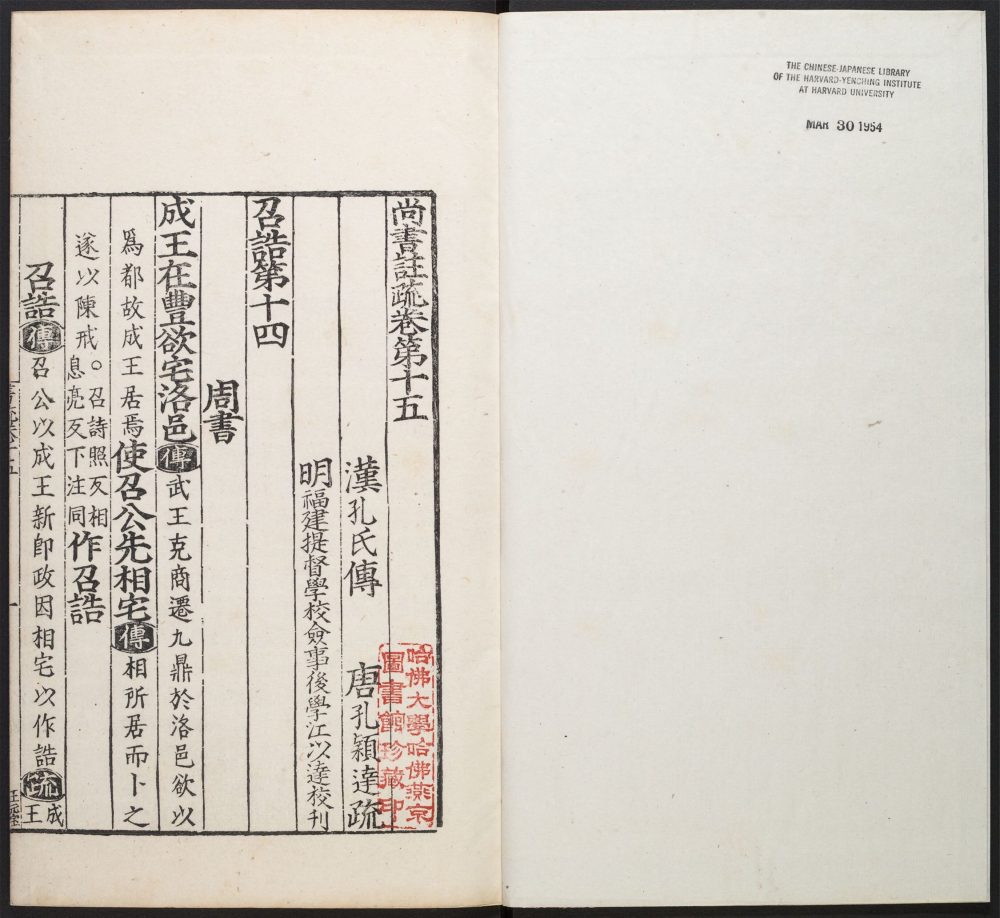 THE CHINESE-JAPANESE LIBRARY
OF THE HARVARD-YENCHING INSTITUTE
AT HARVARD UNIVERSITY
MAR 30 1954
尚書註疏卷第十五
漢孔氏傳 唐孔穎達疏
明福建提督學校僉事後學江以達校刊
召誥第十四
周書
成王在豐欲宅洛邑傳武王克商遷九鼎於洛邑欲以
爲都故成王居焉使召公先相宅傳相所居而卜之
遂以陳戒。召詩照反相息亮反下注同作召誥
召誥傳召公以成王新卽政因相宅以作誥疏成王
哈佛大學哈佛燕京
圖書館珍藏印